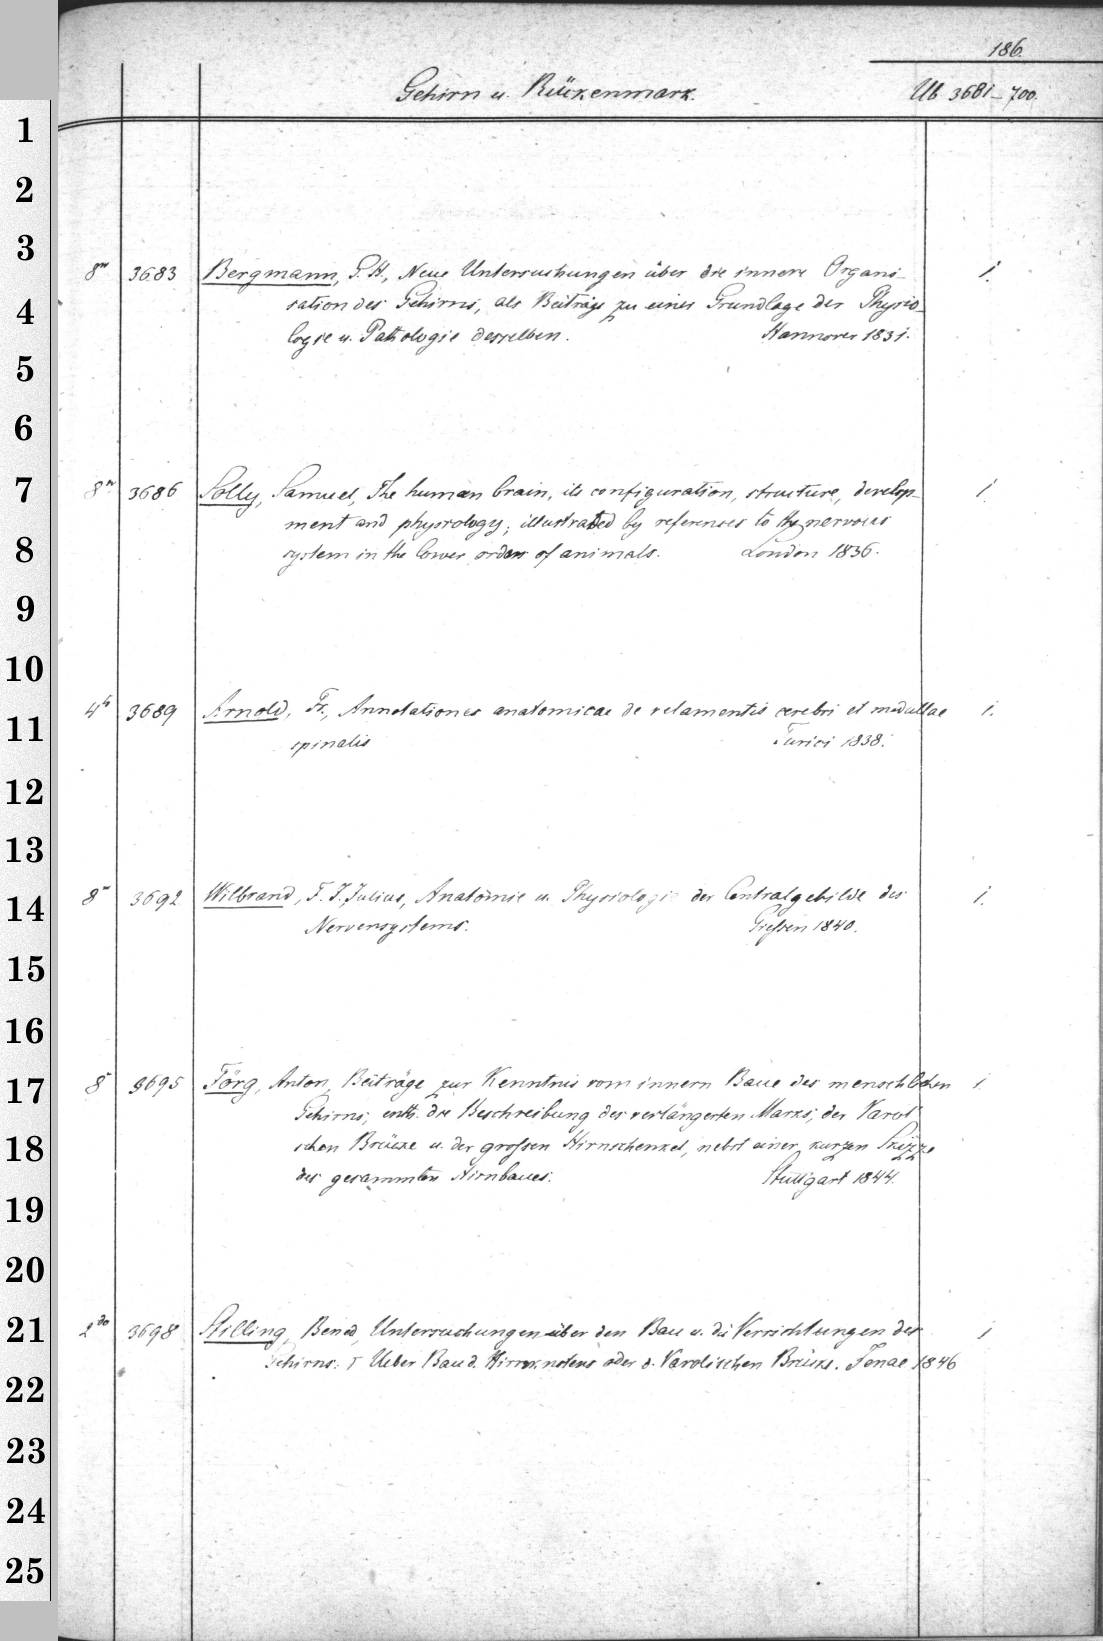 186.
Gehirn u. Rückenmark.
Ub 3681–700.
8vo 3683 Bergmann, G. H., Neue Untersuchungen über die innere Organi- 1.
sation des Gehirns, als Beiträge zu einer Grundlage der Physio-
logie u. Pathologie desselben. Hannover 1831.
8vo 3686 Solly, Samuel, The human brain, its configuration, structure, develop- 1
ment and physiology; illustrated by references to the nervous
system in the lower orders of animals. London 1836.
4to 3689 Arnold, Fr., Annotationes anatomicae de velamentis cerebri et medullae 1.
spinalis Turici 1838.
8vo 3692 Wilbrand, F. J. Julius, Anatomie u. Physiologie der Centralgebilde des 1.
Nervensystems. Giessen 1840.
8vo 3695 Förg, Anton, Beiträge zur Kenntnis vom innern Baue des menschlichen 1
Gehirns, enth. die Beschreibung des verlängerten Marks, der Varol'
schen Brücke u. der grossen Hirnschenkel, nebst einer kurzen Skizze
des gesammten Hirnbaues. Stuttgart 1844.
2do 3698 Stilling, Bened, Untersuchungen über den Bau u. die Verrichtungen des 1
Gehirns. I Ueber Bau d. Hirnknotens oder d. Varolischen Brücke. Jenae 1846
1
2
3
4
5
6
7
8
9
10
11
12
13
14
15
16
17
18
19
20
21
22
23
24
25